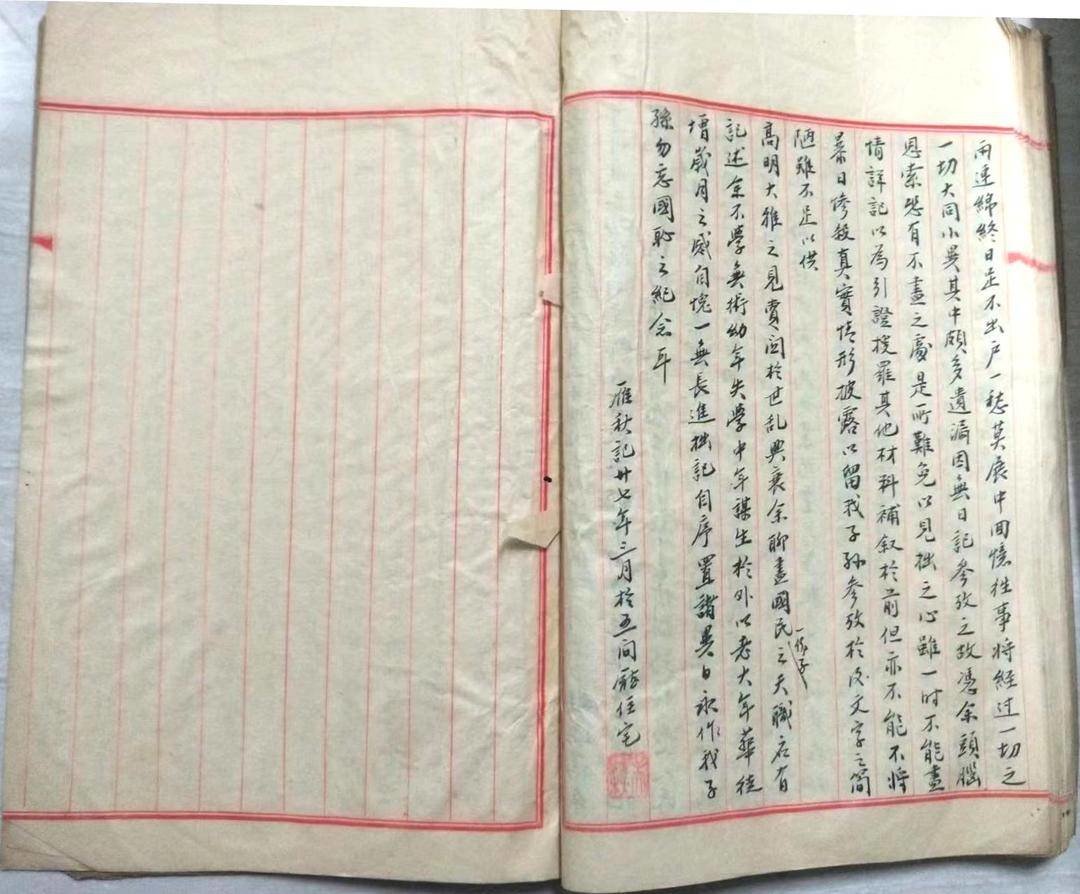 雨連綿終日足不出戶一愁莫展中間憶往事將經过一切之
一切大同小異其中頗多遺漏因無日記參攷之故憑余頭腦
思索恐有不盡之處是所難免以見拙之心雖一时不能盡
情詳記以為引證搜羅其他材料補叙於前但亦不能不將
暴日慘殺真實情形披露以留我子孙參攷於後文字之簡
陋雖不足以供
高明大雅之見實因於世乱興衰余聊盡國民一份子之天職应有
記述余不學無術幼年失學中年謀生於外以老大年華徒
增歲月之感自愧一無長進拙記自序置諸異日永作我子
孫勿忘國恥之紀念耳
雁秋記廿七年三月於五间廳住宅